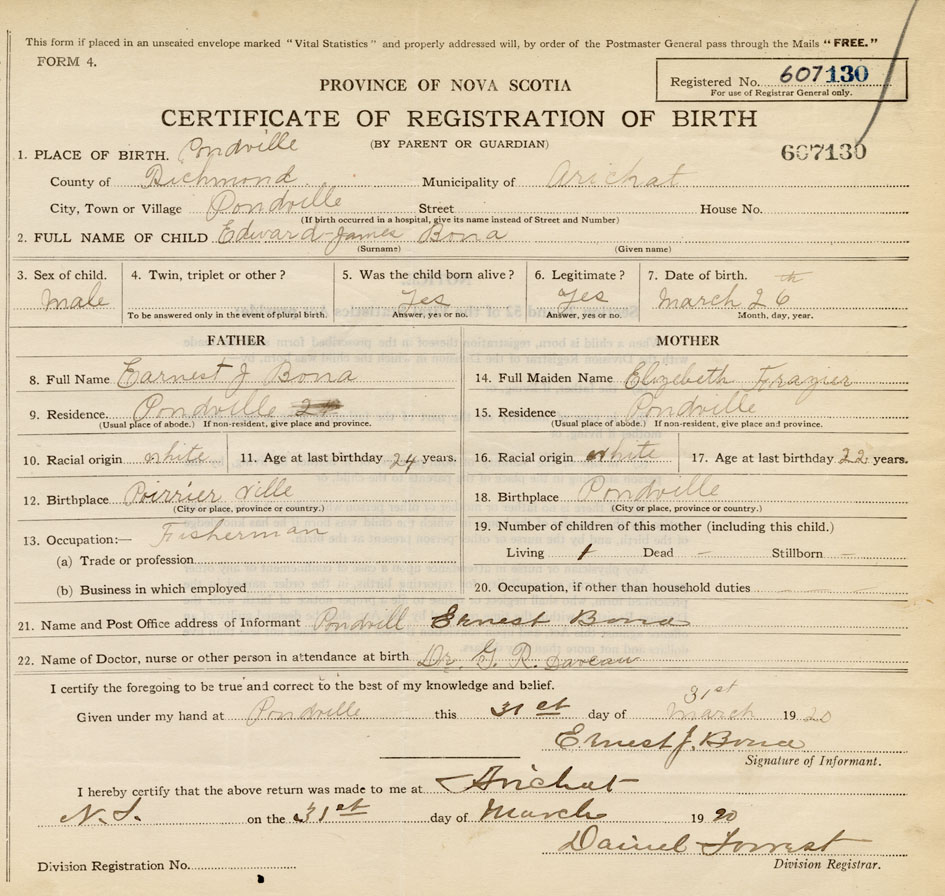 This form if placed in an unsealed envelope marked "Vital Statistics" and properly addressed will, by order of the Postmaster General pass through the Mails "FREE."
FORM 4.
Registered No. 607130
For use of Registrar General only.
PROVINCE OF NOVA SCOTIA
CERTIFICATE OF REGISTRATION OF BIRTH
(BY PARENT OR GUARDIAN)
607130
1. PLACE OF BIRTH. Pondville
County of Richmond Municipality of Arichat
City, Town or Village Pondville Street House No.
(If birth occurred in a hospital, give its name instead of Street and Number)
2. FULL NAME OF CHILD Edward James Bona
(Surname) (Given name)
3. Sex of child. 4. Twin, triplet or other? 5. Was the child born alive? 6. Legitimate? 7. Date of birth.
Male Yes Yes March 26th
To be answered only in the event of plural birth. Answer, yes or no. Answer, yes or no. Month, day, year.
FATHER MOTHER
8. Full Name Earnest J Bona 14. Full Maiden Name Elizebeth Frazier
9. Residence. Pondville 15. Residence Pondville
(Usual place of abode.) If non-resident, give place and province. (Usual place of abode.) If non-resident, give place and province.
10. Racial origin white 11. Age at last birthday 24 years. 16. Racial origin white 17. Age at last birthday 22 years.
12. Birthplace Poirrier Ville 18. Birthplace Pondville
(City or place, province or country.) (City or place, province or country.)
13. Occupation:— Fisherman 19. Number of children of this mother (including this child.)
(a) Trade or profession Living 1 Dead – Stillborn –
(b) Business in which employed 20. Occupation, if other than household duties
21. Name and Post Office address of Informant Pondvill Ernest Bona
22. Name of Doctor, nurse or other person in attendance at birth Dr. G. R. Daveau
I certify the foregoing to be true and correct to the best of my knowledge and belief.
31st
Given under my hand at Pondville this 31st day of March 1920
Ernest J. Bona
Signature of Informant.
I hereby certify that the above return was made to me at Arichat
N.S. on the 31st day of March 1920
Daniel Forrest
Division Registration No. Division Registrar.